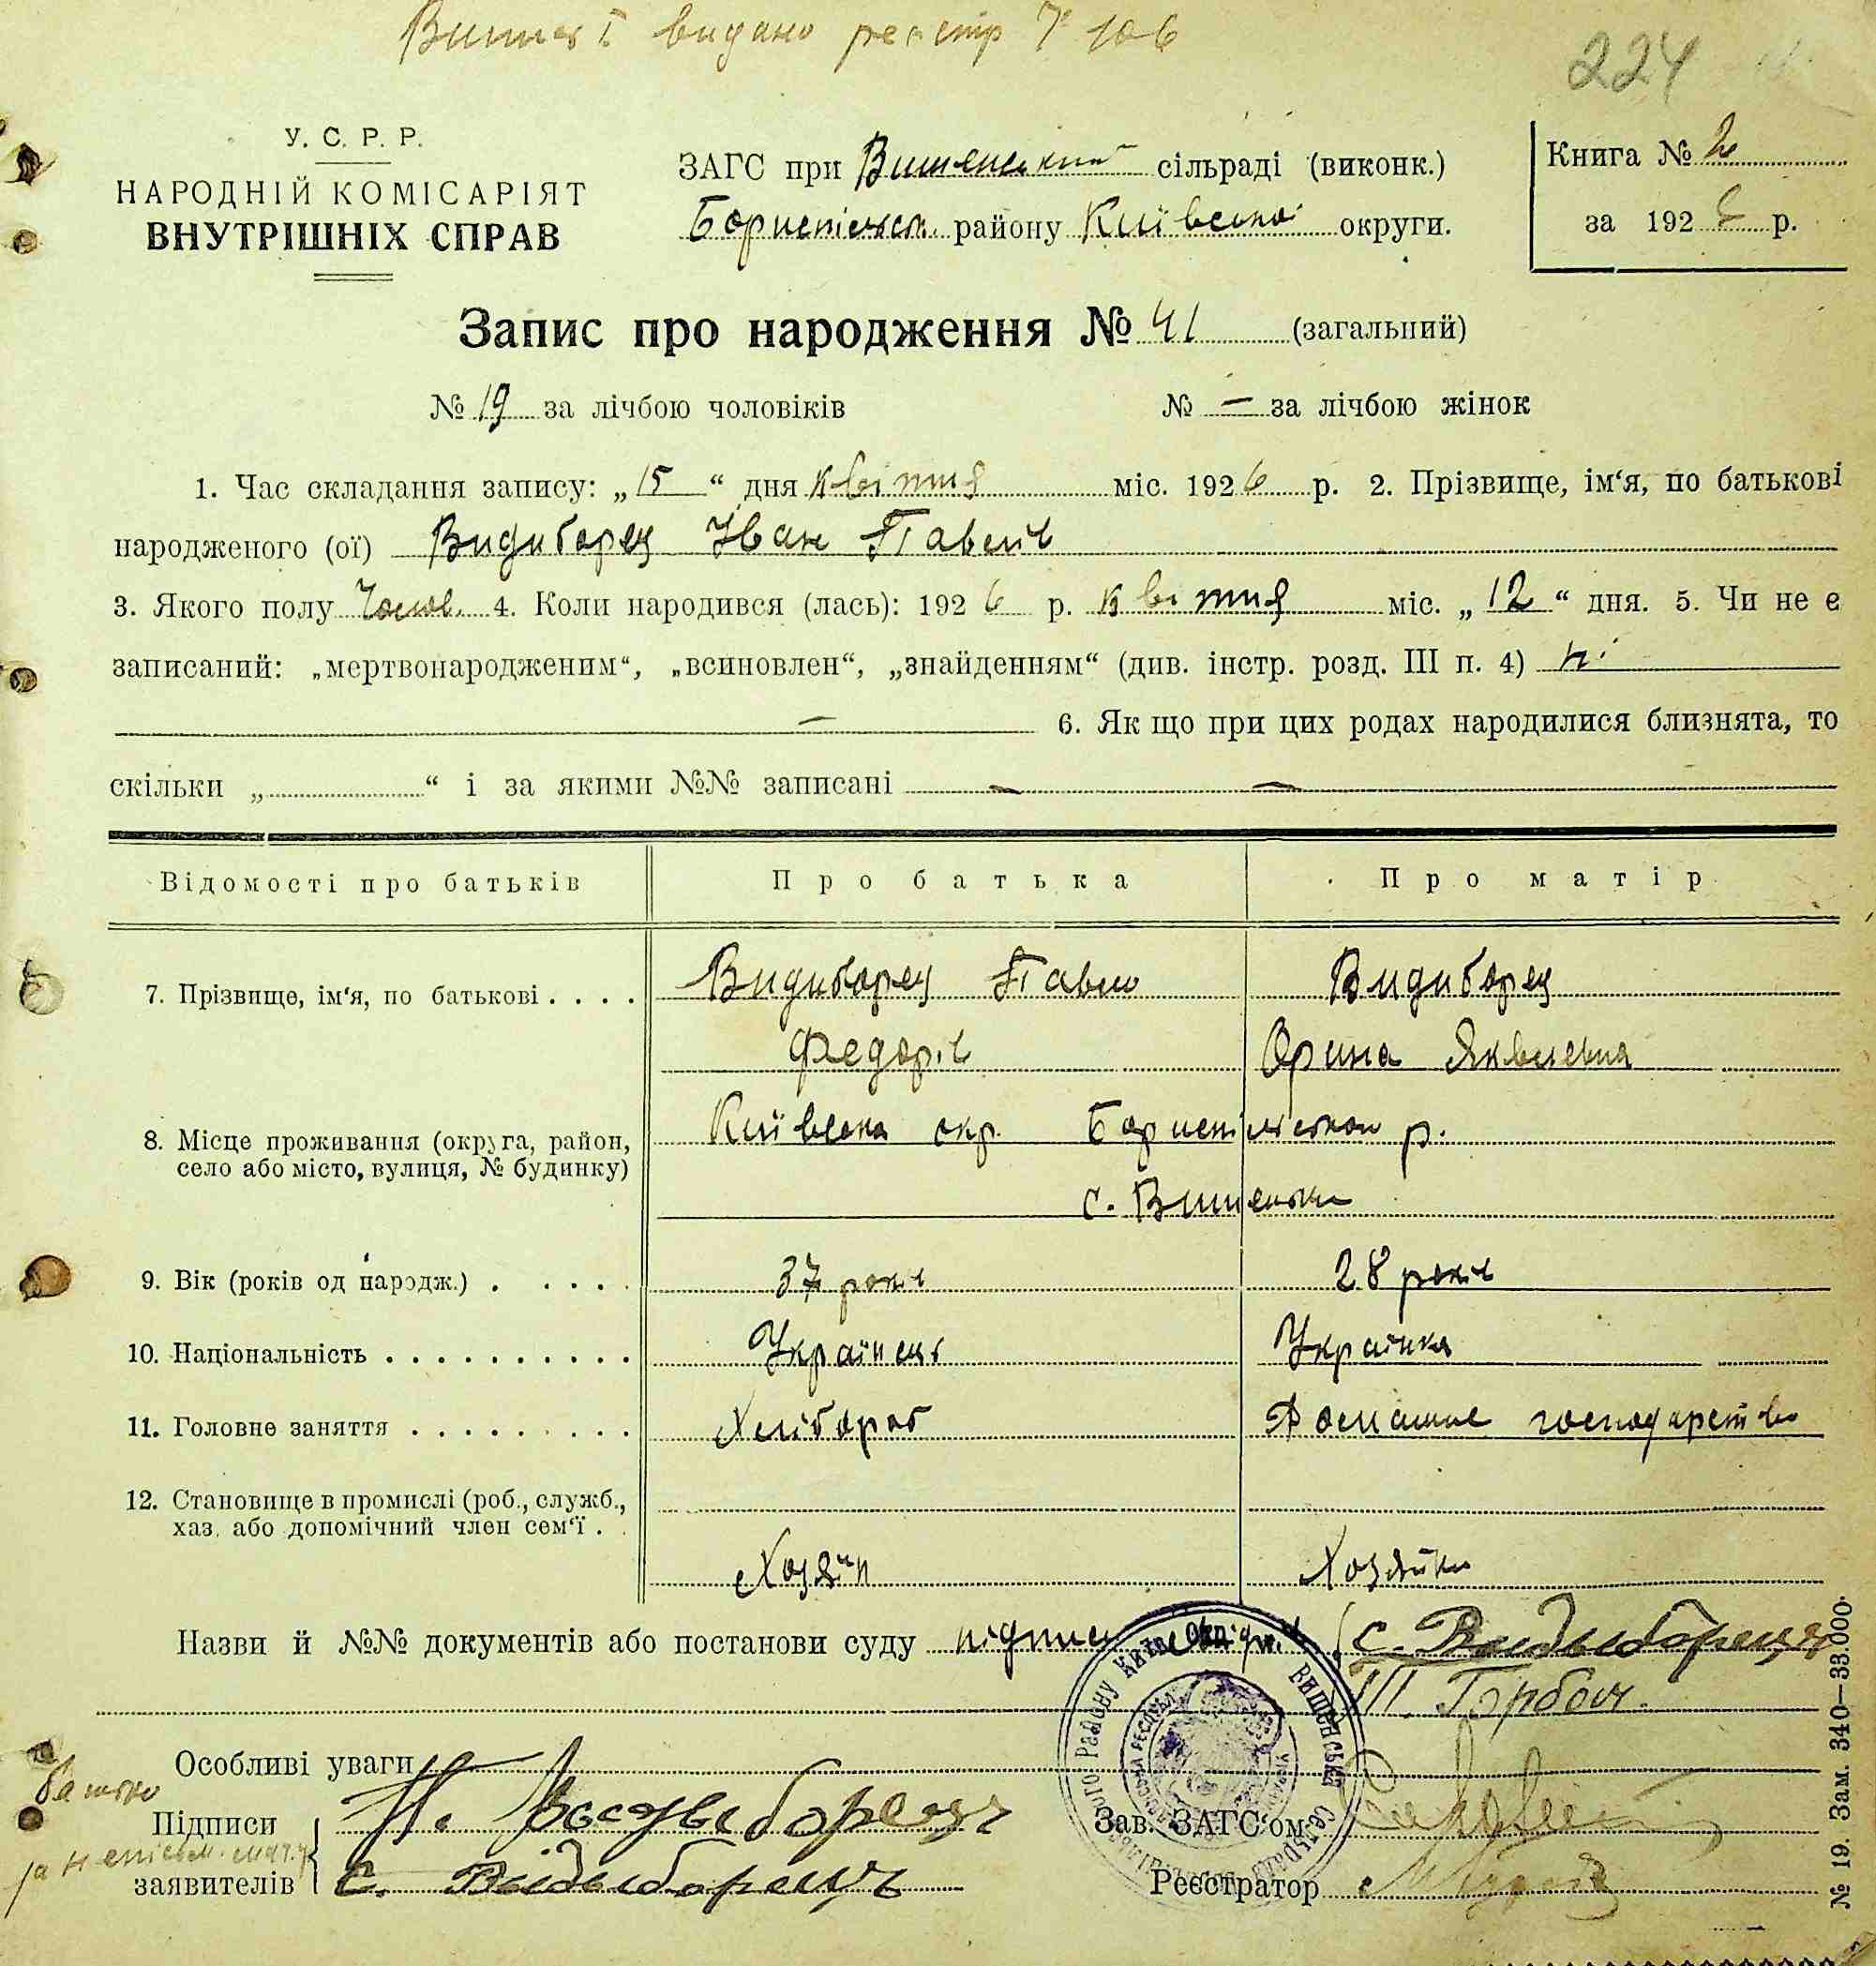 видано реєстр 106
224
У. С. Р. Р.
НАРОДНІЙ КОМІСАРІЯТ
ВНУТРІШНІХ СПРАВ
ЗАГС при Вишенський сільраді (виконк.)
Бориспільськ. району Київської округи.
Книга № 2
за 1926 р.
Запис про народження № 41 (загальний)
№ 19 за лічбою чоловіків
№ — за лічбою жінок
1. Час складання запису: „15“ дня квітня міс. 1926 р. 2. Прізвище, ім‘я, по батькові
народженого (ої) Видиборец Іван Павлів
3. Якого полу Чолов. 4. Коли народився (лась): 1926 р. квітня міс. „12“ дня. 5. Чи не є
записаний: „мертвонародженим“, „всиновлен“, „знайденням“ (див. інстр. розд. III п. 4) ні
— 6. Як що при цих родах народилися близнята, то
скільки „ “ і за якими №№ записані — —
Відомості про батьків Про батька Про матір
7. Прізвище, ім‘я, по батькові . . . . Видиборец Павло Видиборец
Федорів Орина Яковлевна
8. Місце проживання (округа, район, Київська окр. Бориспільском р.
село або місто, вулиця, № будинку)
с. Вишеньки
9. Вік (років од народж.) . . . . . 37 років 28 років
10. Національність . . . . . . . . . . Українець Українка
11. Головне заняття . . . . . . . . . Хлібороб Домашнє господарство
12. Становище в промислі (роб., служб.,
хаз. або допомічний член сем‘ї . .
Хозяїн Хозяйка
Назви й №№ документів або постанови суду підписи свідків С. Видыборець
Т. Горбач
Особливі уваги
батько
Підписи
Н. Видыборець
Зав. ЗАГС‘ом
за неписьм.
заявителів С. Видыборець
Реєстратор
№ 19. Зам. 340—33.000.